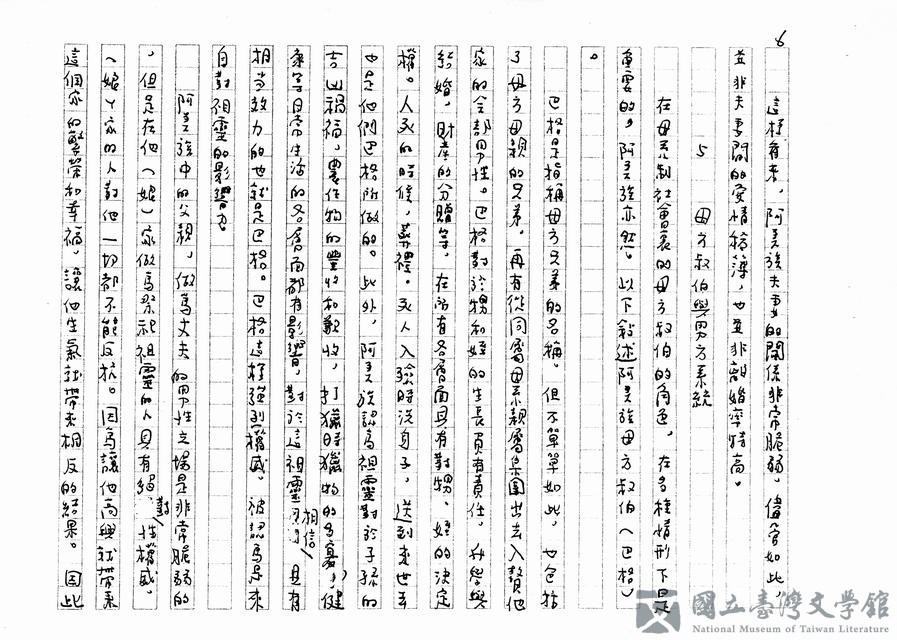 6
這樣看來，阿美族夫妻的關係非常脆弱，儘管如此，
並非夫妻間的愛情稀薄，也並非離婚率特高。
5 母方叔伯與男方系統
在母系制社會裏的母方叔伯的角色，在多種情形下是
重要的，阿美族亦然。以下敍述阿美族母方叔伯（巴格）
。
巴格是指稱母方兄弟的名稱。但不單單如此，也包括
了母方母親的兄弟。再有從同屬母系親屬集團出去入贅他
家的全部男性。巴格對於甥和姪的生長負有責任，升學與
結婚，財產的分贈等，在所有各層面具有對甥、姪的決定
權。人死的時候，葬禮。死人入殮時洗身子，送到來世去
也是他們巴格所做的。此外，阿美族認為祖靈對於子孫的
吉凶禍福，農作物的豐收和歉收，打獵時獵物的多寡，健
康等日常生活的各層面都有影響，對於這祖靈 相信具有
相當效力的也就是巴格。巴格這種強烈權威，被認為是來
自對祖靈的影響力。
阿美族中的父親，做為丈夫的男性立場是非常脆弱的
，但是在他（娘）家做為祭祀祖靈的人具有絕對性權威，
（娘）家的人對他一切都不能反抗。因為讓他高興就帶來
這個家的繁榮和幸福，讓他生氣就帶來相反的結果。因此
國立臺灣文學館
National Museum of Taiwan Literature